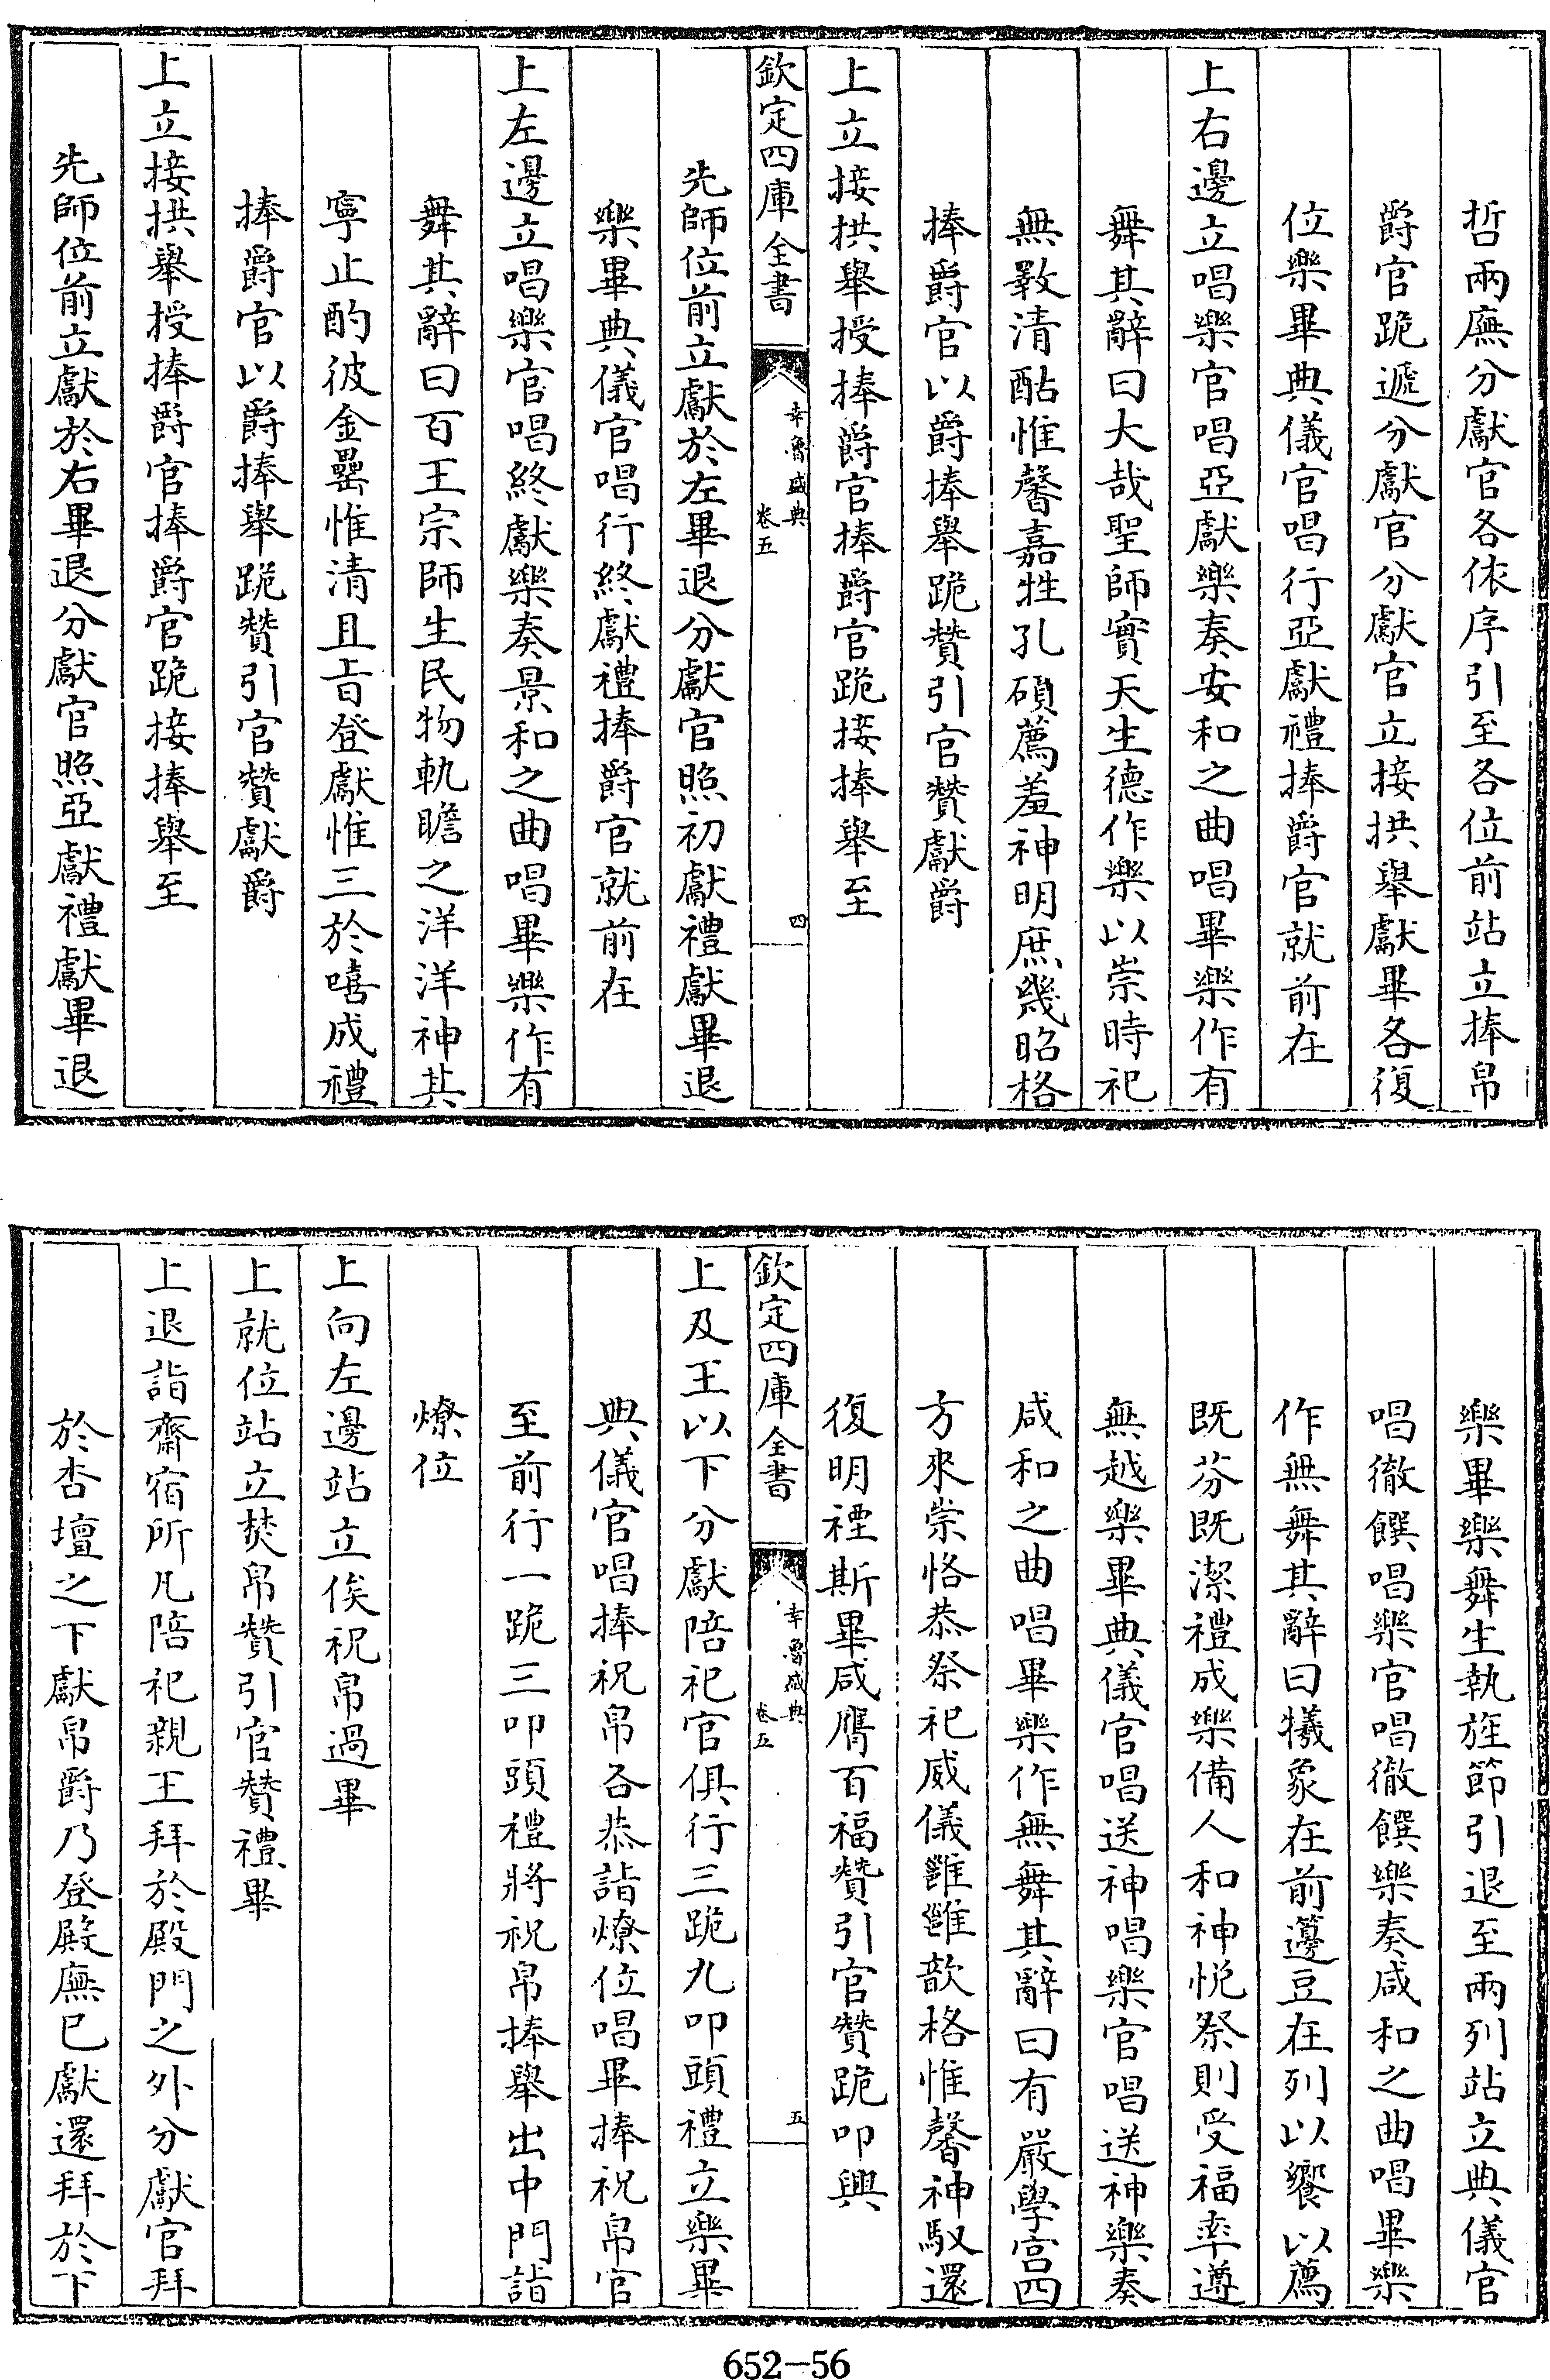 哲兩廡分獻官各依序引至各位前站立捧帛
爵官跪遞分獻官分獻官立接拱舉獻畢各復
位樂畢典儀官唱行亞獻禮捧爵官就前在
上右邊立唱樂官唱亞獻樂奏安和之曲唱畢樂作有
舞其辭曰大哉聖師實天生德作樂以崇時祀
無斁清酤惟馨嘉牲孔碩薦羞神明庶幾昭格
捧爵官以爵捧舉跪贊引官贊獻爵
上立接拱舉授捧爵官捧爵官跪接捧舉至
欽定四庫全書
幸魯盛典
卷五
四
先師位前立獻於左畢退分獻官照初獻禮獻畢退
樂畢典儀官唱行終獻禮捧爵官就前在
上左邊立唱樂官唱終獻樂奏景和之曲唱畢樂作有
舞其辭曰百王宗師生民物軌瞻之洋洋神其
寧止酌彼金罍惟清且旨登獻惟三於嘻成禮
捧爵官以爵捧舉跪贊引官贊獻爵
上立接拱舉授捧爵官捧爵官跪接捧舉至
先師位前立獻於右畢退分獻官照亞獻禮獻畢退
樂畢樂舞生執旌節引退至兩列站立典儀官
唱徹饌唱樂官唱徹饌樂奏咸和之曲唱畢樂
作無舞其辭曰犧象在前籩豆在列以饗以薦
既芬既潔禮成樂備人和神悅祭則受福率遵
無越樂畢典儀官唱送神唱樂官唱送神樂奏
咸和之曲唱畢樂作無舞其辭曰有嚴學宫四
方來崇恪恭祭祀威儀雝雝歆格惟馨神馭還
復明禋斯畢咸膺百福贊引官贊跪叩興
欽定四庫全書
幸魯盛典
卷五
五
上及王以下分獻陪祀官俱行三跪九叩頭禮立樂畢
典儀官唱捧祝帛各恭詣燎位唱畢捧祝帛官
至前行一跪三叩頭禮將祝帛捧舉出中門詣
燎位
上向左邊站立俟祝帛過畢
上就位站立焚帛贊引官贊禮畢
上退詣齋宿所凡陪祀親王拜於殿門之外分獻官拜
於杏壇之下獻帛爵乃登殿廡已獻還拜於下
652-56